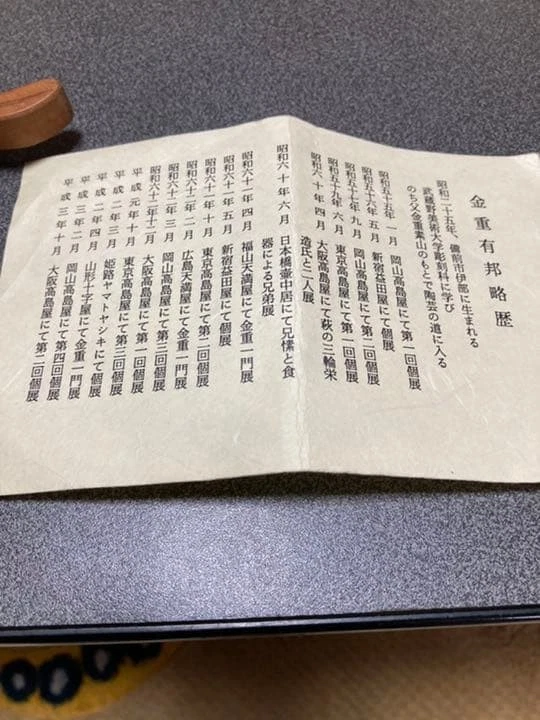 金重有邦略歴
昭和二十五年、備前市伊部に生まれる
武蔵野美術大学彫刻科に学び
のち父金重素山のもとで陶芸の道に入る
昭和五十五年 一月 岡山高島屋にて第一回個展
昭和五十六年 五月 新宿益田屋にて個展
昭和五十七年 九月 岡山高島屋にて第二回個展
昭和五十九年 六月 東京高島屋にて第一回個展
昭和六十年 四月 大阪高島屋にて萩の三輪栄
造氏と二人展
昭和六十年 六月 日本橋壷中居にて兄愫と食
器による兄弟展
昭和六十一年 四月 福山天満屋にて金重一門展
昭和六十一年 五月 新宿益田屋にて個展
昭和六十一年 十月 東京高島屋にて第二回個展
昭和六十二年 二月 広島天満屋にて金重一門展
昭和六十三年 三月 岡山高島屋にて第三回個展
昭和六十三年十二月 大阪高島屋にて第一回個展
平成元年十月 東京高島屋にて第三回個展
平成二年三月 姫路ヤマトヤシキにて個展
平成二年四月 山形十字屋にて金重一門展
平成三年二月 岡山高島屋にて第四回個展
平成三年十月 大阪高島屋にて第二回個展